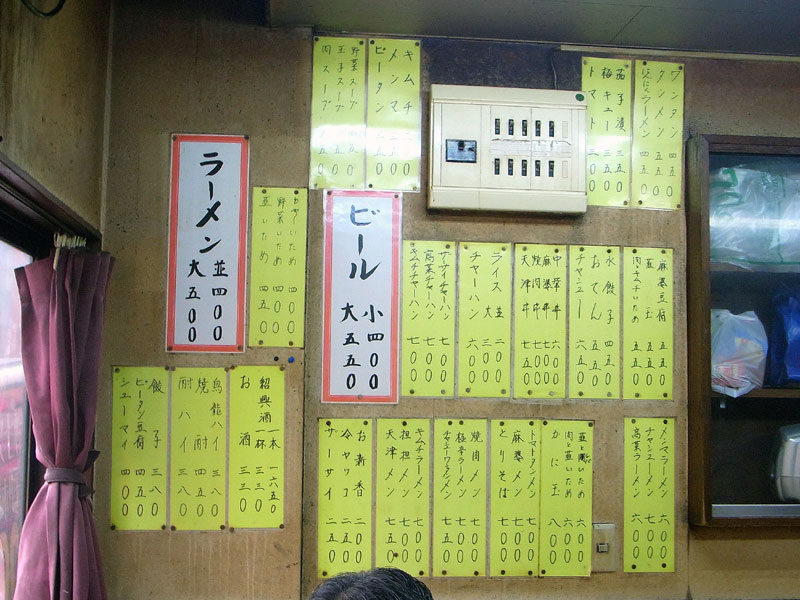 ワンタン 四五〇
タンメン 五五〇
茄子漬 三五〇
梅キュー 三五〇
トマト 三〇〇
キムチ
メンマ
ピータン
野菜スープ
玉子スープ
肉スープ
ラーメン 並四〇〇
大五〇〇
ビール 小四〇〇
大五五〇
野菜いため 四〇〇
麻婆豆腐 五五〇
韮玉 五五〇
肉とキムチいため 五五〇
水餃子 四五〇
おでん 五五〇
チャシュー 六五〇
中華丼 六〇〇
麻婆丼 七〇〇
焼肉丼 七〇〇
天津丼 七〇〇
ライス 並 二〇〇
大 三〇〇
チャーハン 六〇〇
高菜チャーハン 七〇〇
キムチチャーハン 七〇〇
紹興酒 一本 一六五〇
一杯 三三〇
お酒 三三〇
烏龍ハイ 三八〇
焼酎 四五〇
酎ハイ 三八〇
餃子 三八〇
ピータン豆腐 四五〇
シューマイ 四〇〇
メンマラーメン 六〇〇
チャシューメン 七〇〇
高菜ラーメン 六〇〇
肉と韮いため 六〇〇
かに玉 八〇〇
トマトタンメン 七〇〇
麻婆メン 七〇〇
とりそば 七〇〇
焼肉メン 七〇〇
極辛ラーメン 七〇〇
キムチラーメン 七〇〇
担担メン 七〇〇
天津メン 七〇〇
お新香 二〇〇
冷ヤッコ 二五〇
ザーサイ 二五〇